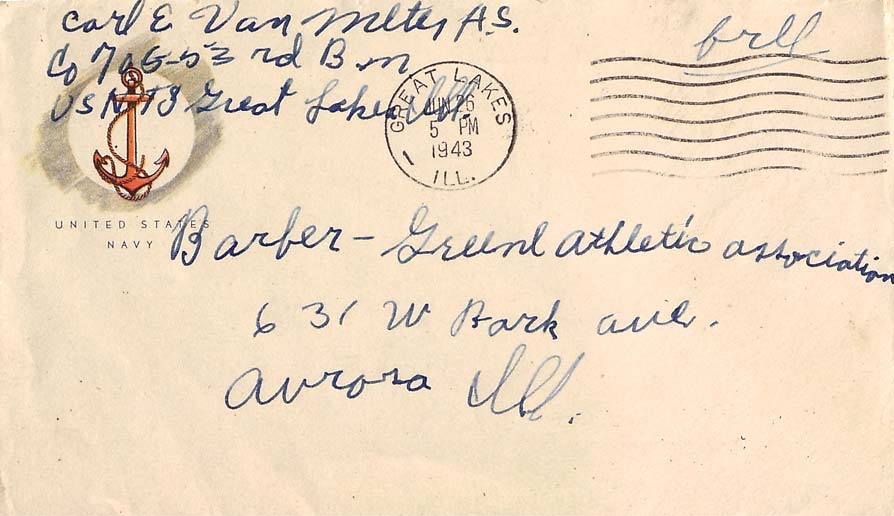 Carl E Van Meter A.S.
Co 706-53rd B.n
USNTS Great Lakes Ill.
free
GREAT LAKES
JUN 26
5 PM
1943
1
ILL.
UNITED STATES
NAVY
Barber-Greene Athletic association
631 W Park ave.
Aurora Ill.